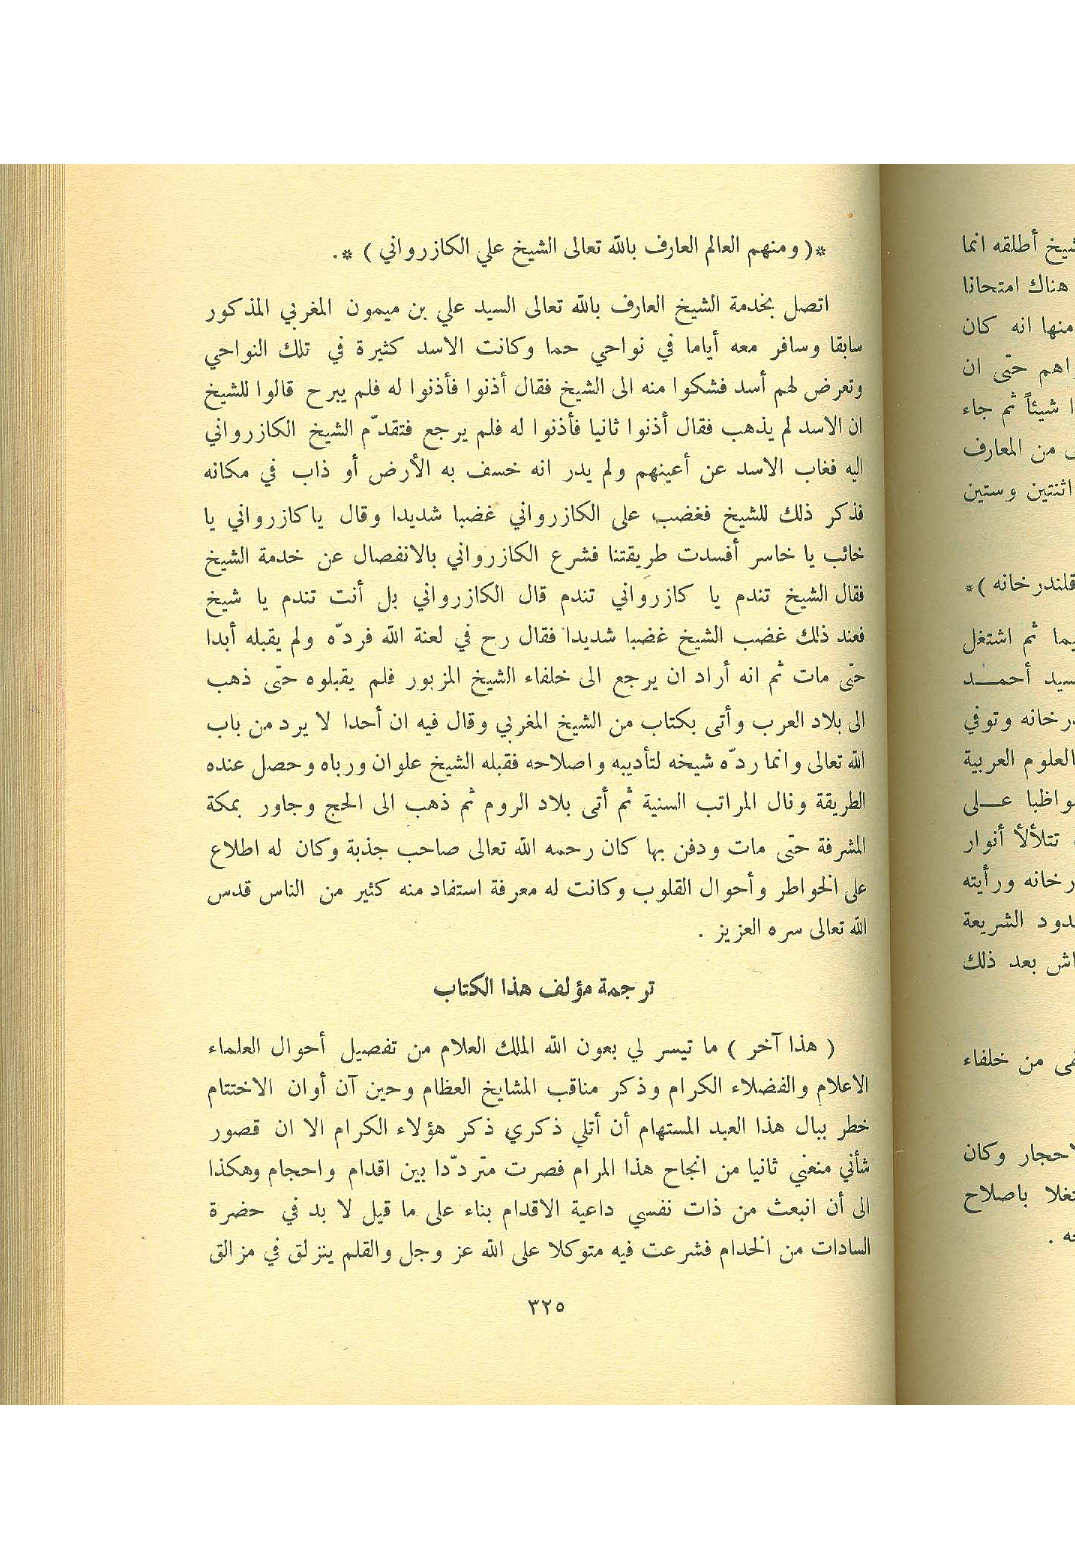 *( ومنهم العالم العارف بالله تعالى الشيخ علي الكازرواني ) *.
اتصل بخدمة الشيخ العارف بالله تعالى السيد علي بن ميمون المغربي المذكور
سابقا وسافر معه أياما في نواحي حما وكانت الاسد كثيرة في تلك النواحي
وتعرض لهم أسد فشكوا منه الى الشيخ فقال أذنوا فأذنوا له فلم يبرح قالوا للشيخ
ان الاسد لم يذهب فقال أذنوا ثانيا فأذنوا له فلم يرجع فتقدّم الشيخ الكازرواني
اليه فغاب الاسد عن أعينهم ولم يدر انه خسف به الأرض أو ذاب في مكانه
فذكر ذلك للشيخ فغضب على الكازرواني غضبا شديدا وقال ياكازرواني يا
خائب يا خاسر أفسدت طريقتنا فشرع الكازرواني بالانفصال عن خدمة الشيخ
فقال الشيخ تندم يا كازرواني تندم قال الكازرواني بل أنت تندم يا شيخ
فعند ذلك غضب الشيخ غضبا شديدا فقال رح في لعنة الله فردّه ولم يقبله أبدا
حتّى مات ثم انه أراد ان يرجع الى خلفاء الشيخ المزبور فلم يقبلوه حتّى ذهب
الى بلاد العرب وأتى بكتاب من الشيخ المغربي وقال فيه ان أحدا لا يرد من باب
الله تعالى وانما ردّه شيخه لتأديبه واصلاحه فقبله الشيخ علوان ورباه وحصل عنده
الطريقة ونال المراتب السنية ثم أتى بلاد الروم ثم ذهب الى الحج وجاور بمكة
المشرفة حتّى مات ودفن بها كان رحمه الله تعالى صاحب جذبة وكان له اطلاع
على الخواطر وأحوال القلوب وكانت له معرفة استفاد منه كثير من الناس قدس
الله تعالى سره العزيز .
ترجمة مؤلف هذا الكتاب
( هذا آخر ) ما تيسر لي بعون الله الملك العلام من تفصيل أحوال العلماء
الاعلام والفضلاء الكرام وذكر مناقب المشايخ العظام وحين آن أوان الاختتام
خطر ببال هذا العبد المستهام أن أتلي ذكري ذكر هؤلاء الكرام الا ان قصور
شأني منعني ثانيا من انجاح هذا المرام فصرت متردّدا بين اقدام واحجام وهكذا
الى أن انبعث من ذات نفسي داعية الاقدام بناء على ما قيل لا بد في حضرة
السادات من الخدام فشرعت فيه متوكلا على الله عز وجل والقلم ينزلق في مزالق
٣٢٥
شيخ أطلقه انما
هناك امتحانا
منها انه كان
حتّى ان
شيئاً ثم جاء
من المعارف
اثنتين وستين
قلندرخانه )*
ثم اشتغل
سيد أحمد
وتوفي
العلوم العربية
على
تتلألأ أنوار
ورأيته
الشريعة
بعد ذلك
من خلفاء
وكان
باصلاح